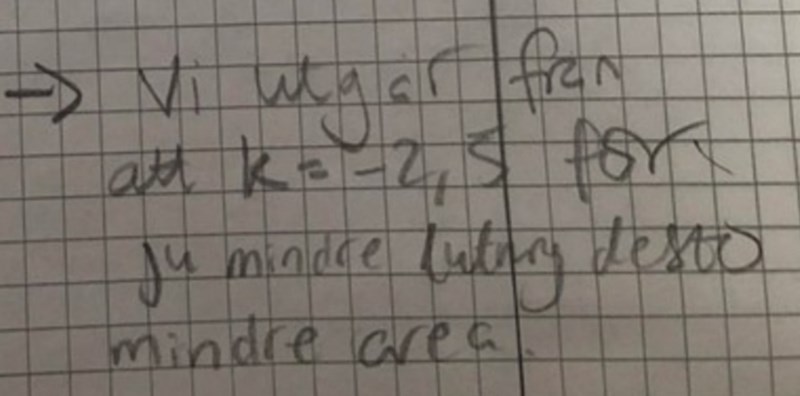 → Vi utgår från
att k = -2,5 för
ju mindre lutning desto
mindre area.